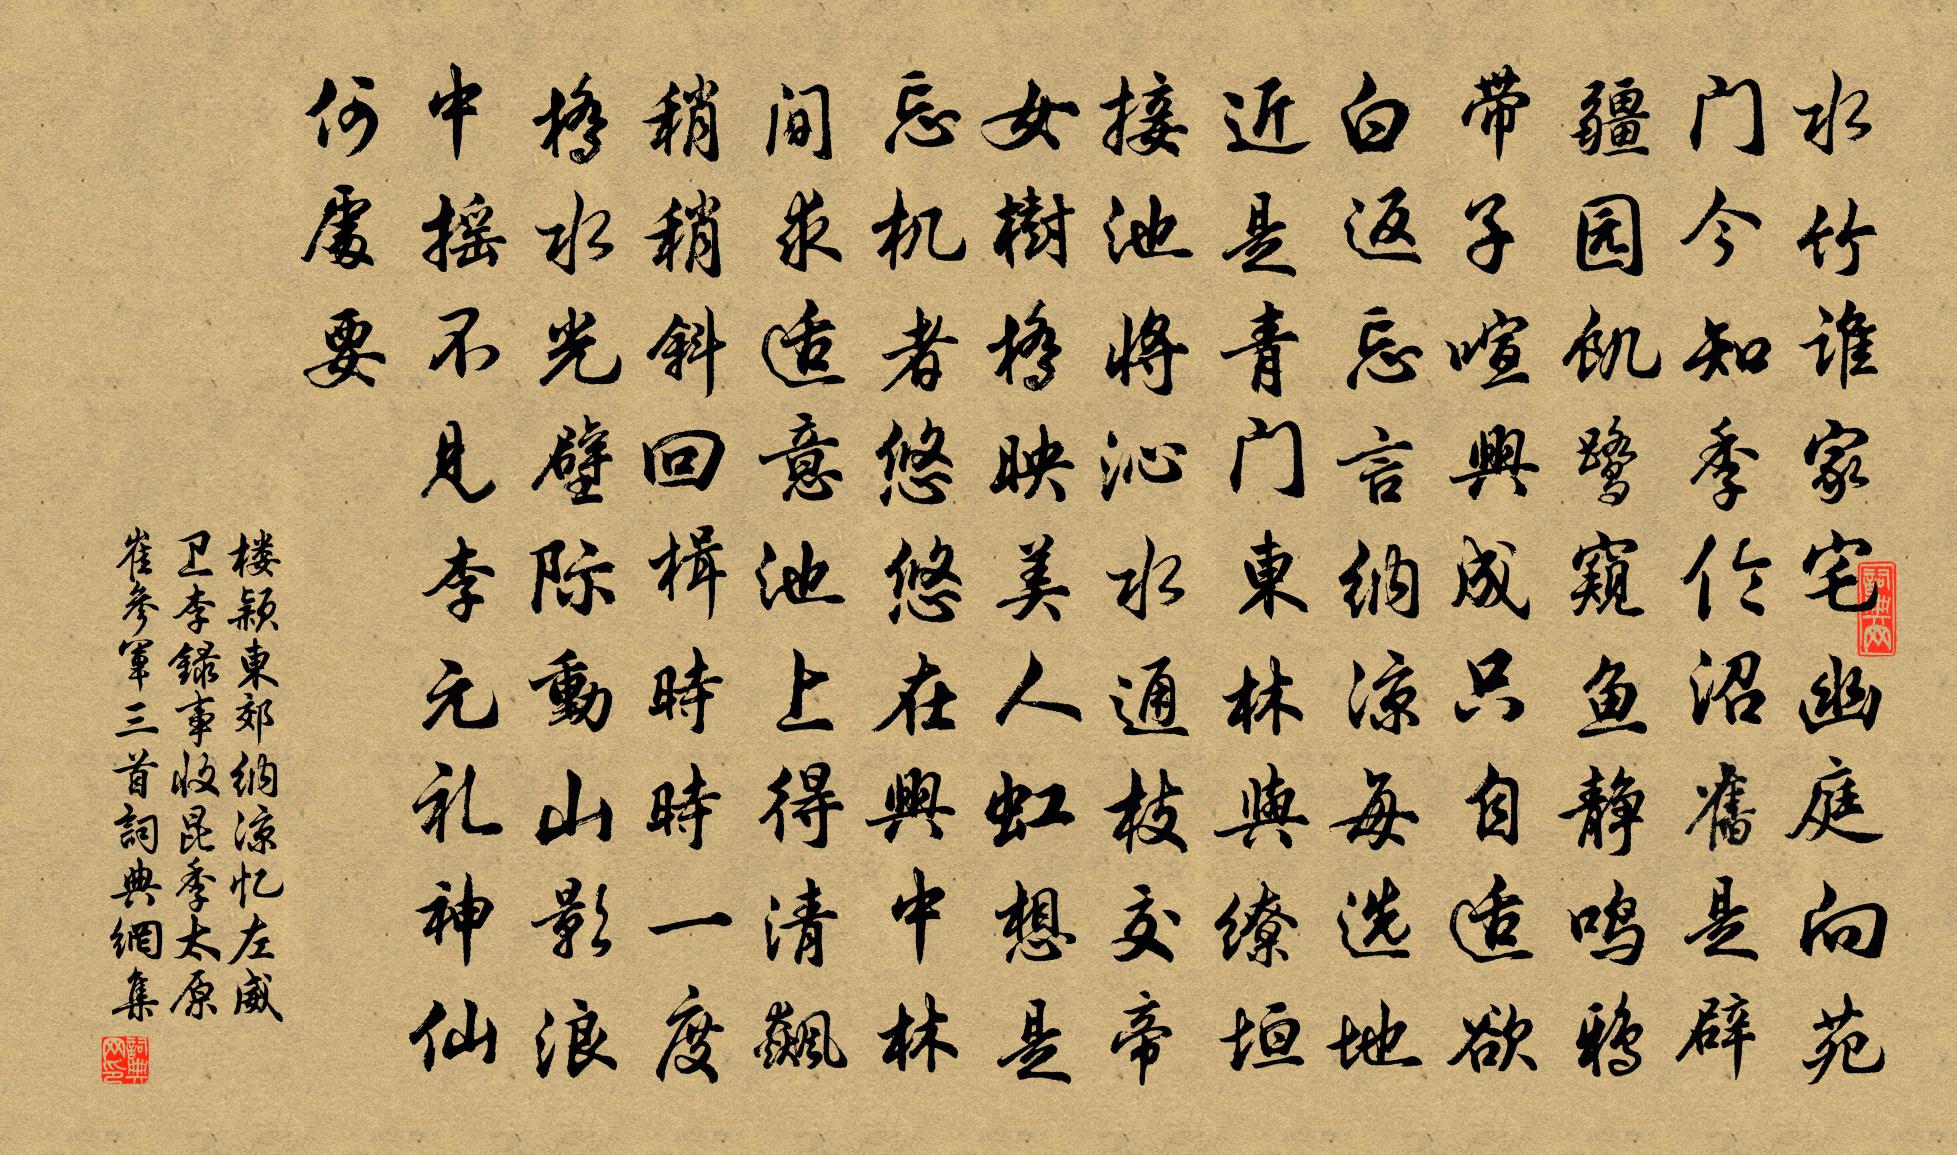 水竹谁家宅幽庭向苑
门今知季伦沼舊是辟
疆园飢鹭窥鱼静鸣鸦
带子喧興成只自适欲
白返忘言纳凉每选地
近是青门東林與缭垣
接池将沁水通枝交帝
女樹橋映美人虹想是
忘机者悠悠在興中林
间求适意池上得清飙
稍稍斜回楫時時一度
橋水光壁际動山影浪
中摇不見李元礼神仙
何處要
楼颖東郊納涼忆左威
卫李録事收昆季太原
崔参軍三首詞典網集
詞典网
詞典网印